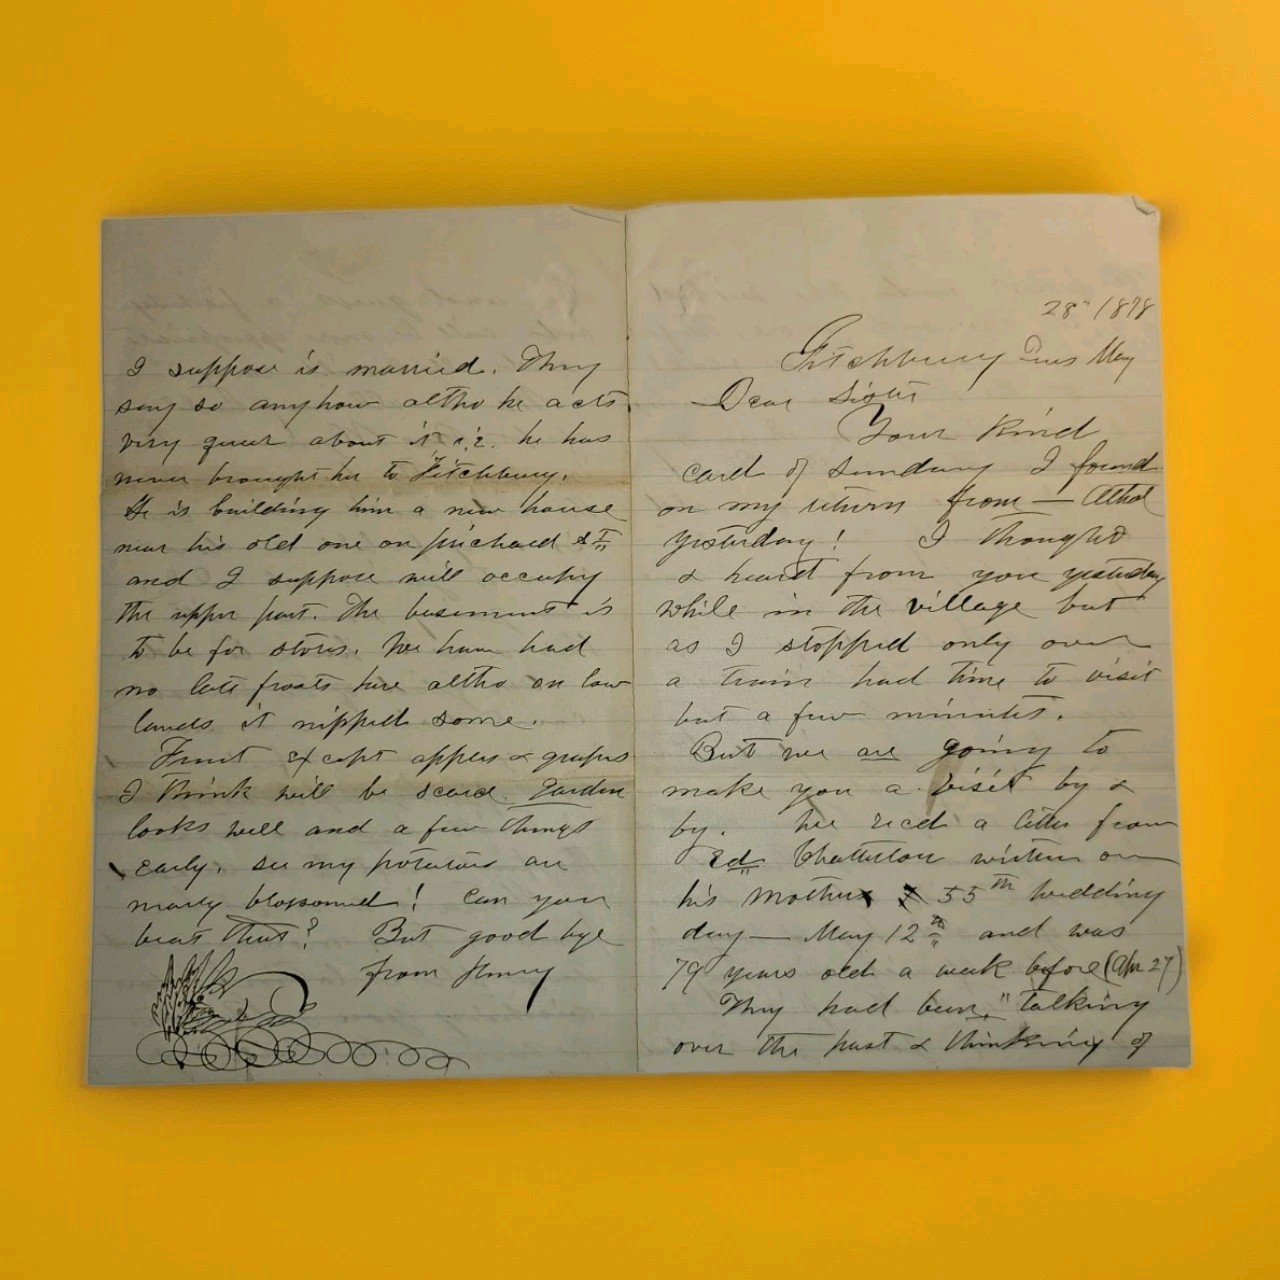 I suppose is married. They
say so anyhow altho he acts
very queer about it i.e. he has
never brought her to Fitchburg.
He is building him a new house
near his old one on Prichard St
and I suppose will occupy
the upper part. The basement is
to be for stores. We have had
no late frosts here altho on low
lands it nipped some.
Fruit except apples & grapes
I think will be scarce. Garden
looks well and a few things
early. see my potatoes are
nearly blossomed! Can you
beat that? But good bye
from Henry
28" 1878
Fitchburg Tues May
Dear Sister
Your Kind
card of Sunday I found
on my return from — Athol
yesterday! I thought
& heard from you yesterday
while in the village but
as I stopped only over
a train had time to visit
but a few minutes.
But we are going to
make you a visit by &
by. We recd a letter from
Ed. Chatterton written on
his mothers 55th wedding
day — May 12th and was
79 years old a week before (Apr 27)
They had been "talking
over the past & thinking of